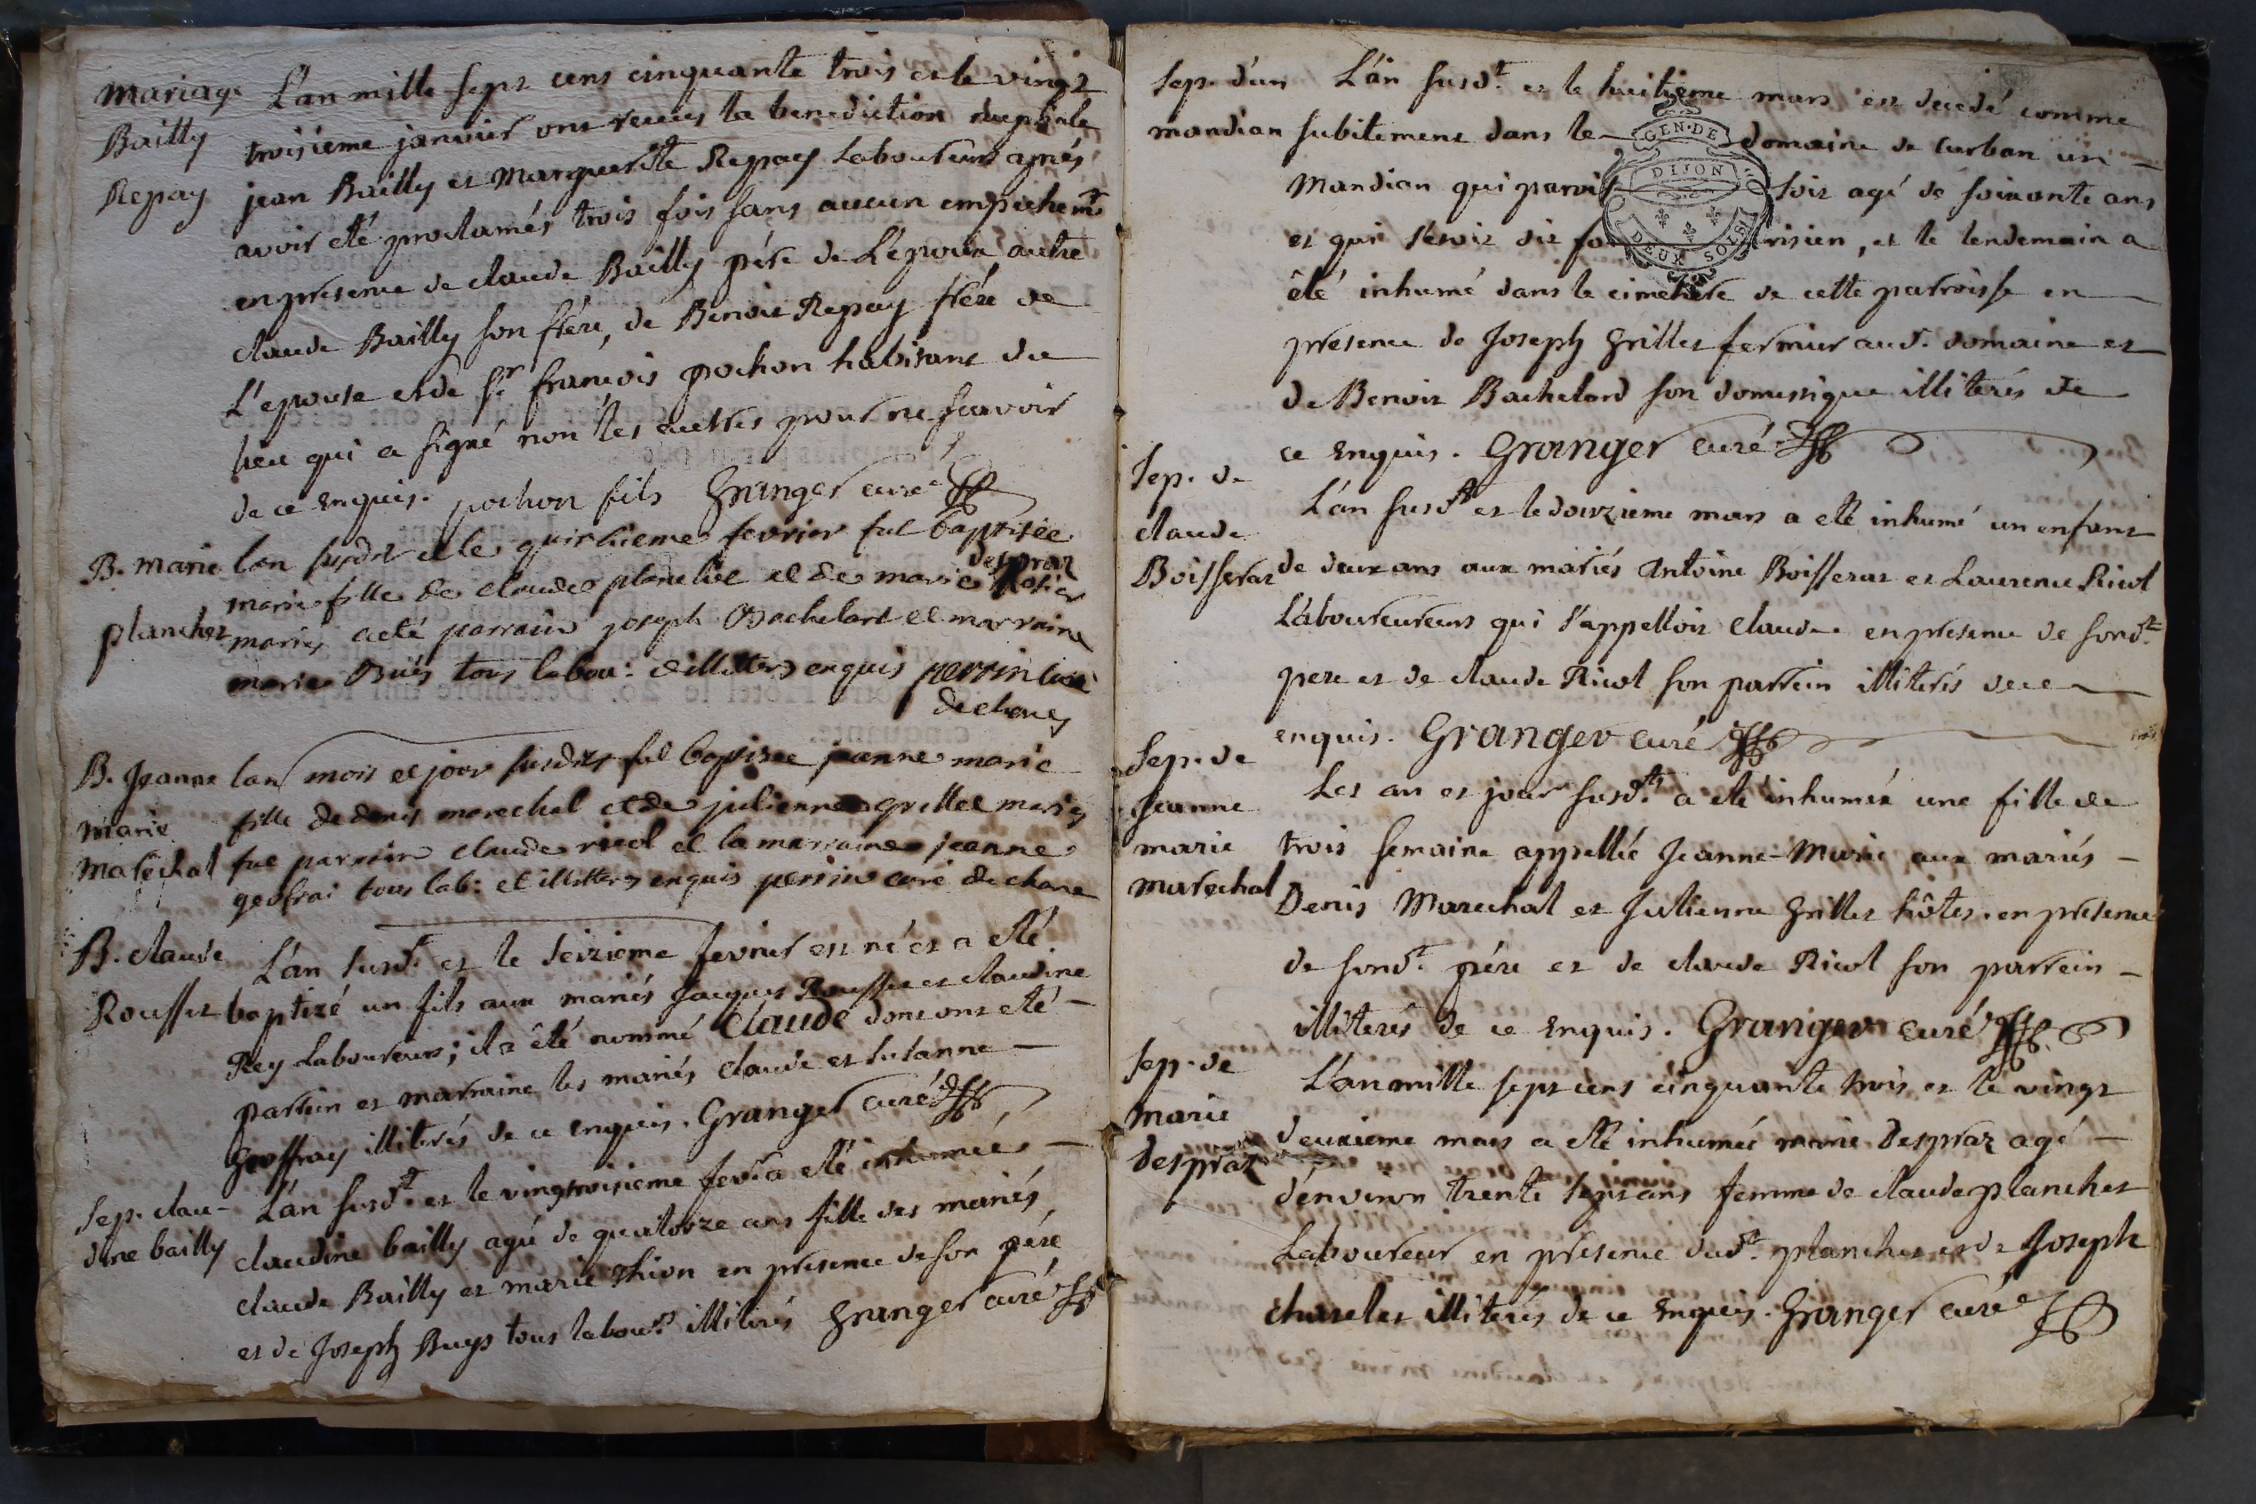 Mariage
Bailly
Repay
L'an mille sept cens cinquante trois et le vingt
troisieme janvier ont receus la benediction nuptiale
jean Bailly et Marguerite Repay Laboureurs aprés
avoir eté proclamés trois fois sans aucun empechemt
en presence de claude Bailly pére de L'epoux autre
claude Bailly son frére, de Benoit Repay frére de
L'epouse et de Sr françois pochon habitant du
lieu qui a signé non les autres pour ne sçavoir
de ce enquis. pochon fils Granger curé
B. marie
planchet
lan susdit et le quinzieme fevrier fut baptisée
marie fille de claude planchet et de marie despraz
mariés a eté parrain joseph Bachelard et marraine
marie Buis tous labou: et illiteres enquis perrin curé
de chane
B. Jeanne
marie
Maréchal
lan mois et jour susdits fut baptisée jeanne marie
fille de denis marechal et de julienne grillet mariés
fut parrain claude ricol et la marraine jeanne
geofrai tous lab: et illitteres enquis perrin curé de chane
B. claude
Rousset
L'an susdt et le seizieme fevrier est né et a eté
baptizé un fils aux mariés Jacques Rousset et claudine
Rey Laboureurs; il a êté nommé Claude dont ont eté
parrein et marraine les mariés claude et susanne
Geoffray illiterés de ce enquis. Granger curé
Sep. clau-
dine bailly
L'an susdt et le vingtroisieme fevr a eté inhumée
claudine bailly agée de quatorze ans fille des mariés
claude Bailly et marie Thion en presence de son pére
et de Joseph Buys tous labourrs illiterés Granger curé
Sep. d'un
mandian
L'an susdt et le huitieme mars est decedé comme
subitement dans le domaine de curban un
Mandian qui paroi soit agé de soixante ans
et qui s'etoit dit fo risien, et le lendemain a
êté inhumé dans le cimetiere de cette parroisse en
presence de Joseph Grillet fermier aud. domaine et
de Benoit Bachelard son domestique illiterés de
ce enquis. Granger curé
GEN. DE
DIJON
DEUX SOLS
Sep. de
claude
Boisserat
L'an susdt et le douzieme mars a eté inhumé un enfant
de deux ans aux mariés Antoine Boisserat et Laurence Ricol
Laboureureurs qui s'appelloit Claude en presence de sondt
pere et de claude Ricol son parrein illiterés de ce
enquis. Granger curé
Sep. de
Jeanne
marie
marechal
Les an et jour susdts a eté inhumée une fille de
trois semaine appellée Jeanne-Marie aux mariés
Denis Marechal et Julienne Grillet hôtes. en presence
de sondt pére et de claude Ricol son parrein
illiterés de ce enquis. Granger curé
Sep. de
marie
despraz
L'an mille sept cens cinquante trois et le vingt
deuxieme mars a eté inhumée marie Despraz agé
d'environ trente sept ans femme de claude planchet
Laboureur en presence dudt planchet et de Joseph
illiterés de ce enquis. Granger curé